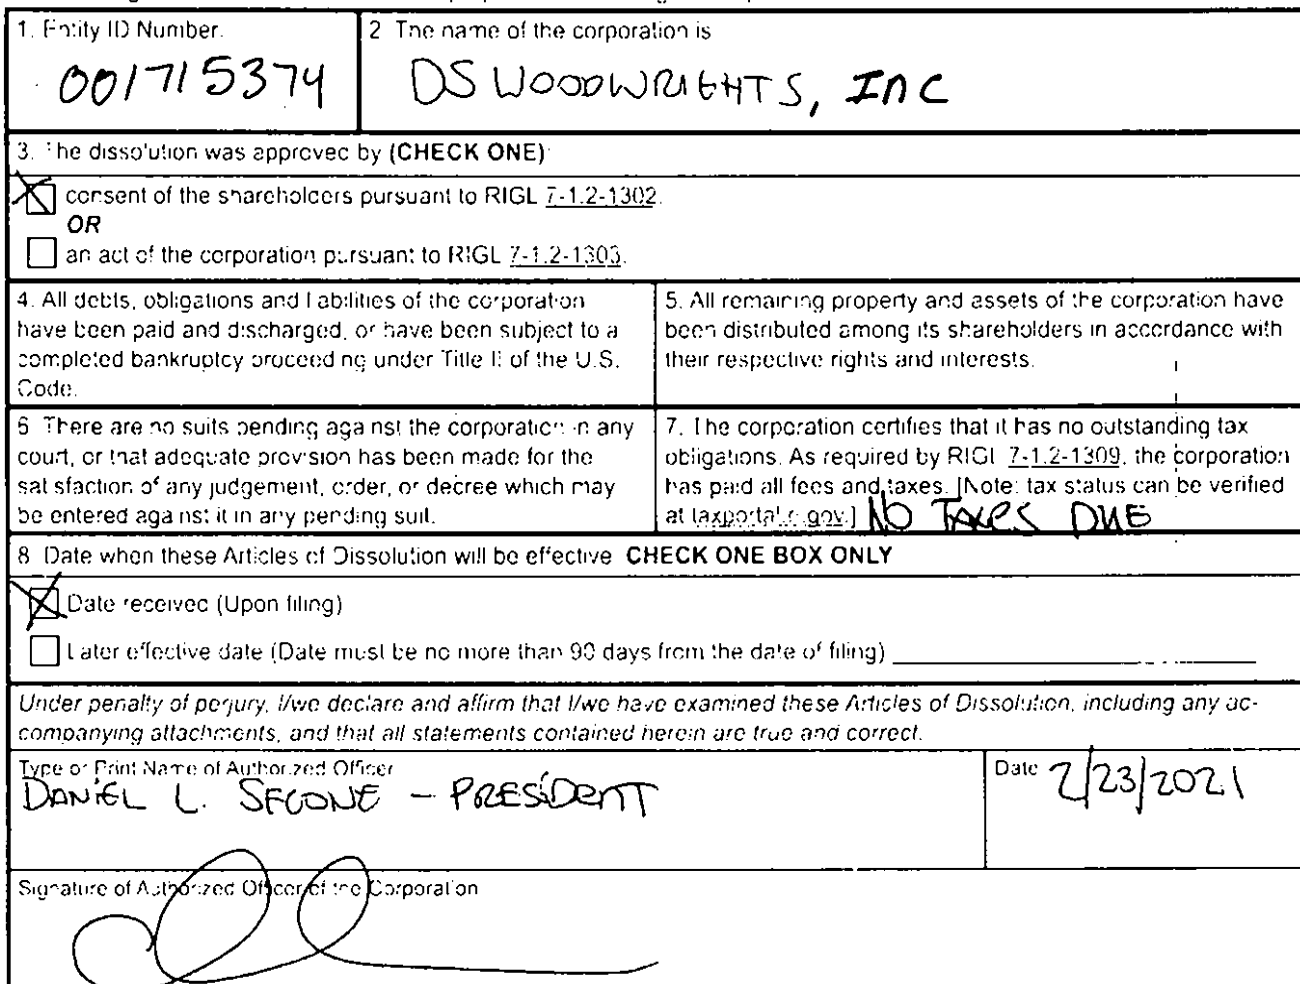 1. Entity ID Number.
001715374
2 The name of the corporation is
DS WOODWRIGHTS, Inc
3. The dissolution was approved by (CHECK ONE):
consent of the shareholders pursuant to RIGL 7-1.2-1302.
OR
an act of the corporation pursuant to RIGL 7-1.2-1303.
4. All debts, obligations and liabilities of the corporation
have been paid and discharged, or have been subject to a
completed bankruptcy proceeding under Title II of the U.S.
Code.
5. All remaining property and assets of the corporation have
been distributed among its shareholders in accordance with
their respective rights and interests.
6 There are no suits pending against the corporation in any
court, or that adequate provision has been made for the
satisfaction of any judgement, order, or decree which may
be entered against it in any pending suit.
7. The corporation certifies that it has no outstanding tax
obligations. As required by RIGL 7-1.2-1309, the corporation
has paid all fees and taxes. [Note: tax status can be verified
at taxportal.ri.gov.] NO TAXES DUE
8 Date when these Articles of Dissolution will be effective CHECK ONE BOX ONLY
Date received (Upon filing)
Later effective date (Date must be no more than 90 days from the date of filing)
Under penalty of perjury, I/we declare and affirm that I/we have examined these Articles of Dissolution, including any ac-
companying attachments, and that all statements contained herein are true and correct.
Type or Print Name of Authorized Officer
DANIEL L. SECONE - PRESIDENT
Date 2/23/2021
Signature of Authorized Officer of the Corporation